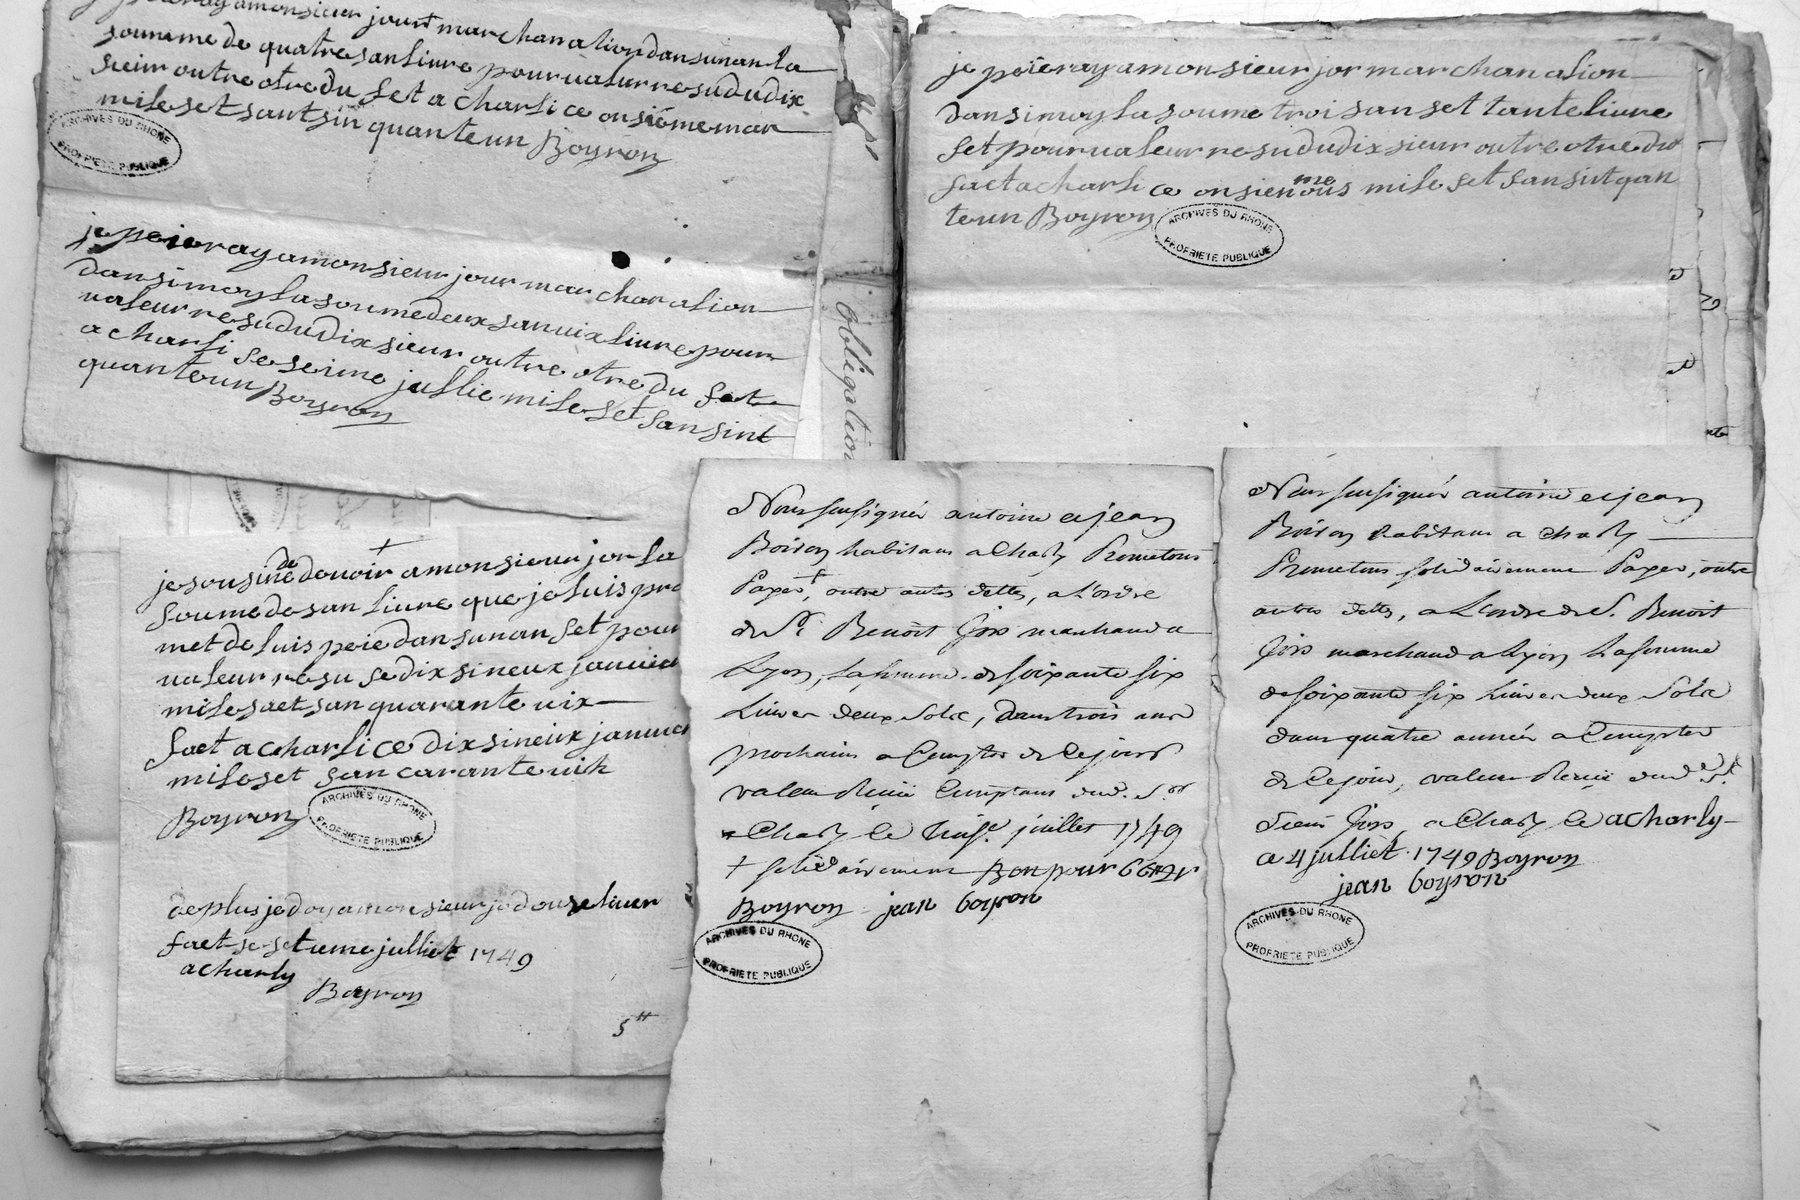 je peieray a monsieur jourt marchan a lion dans un an la
soumme de quatre san livre pour valur resu du dix
sieur outre otre du fet a charli ce onsiéme mar
mile set sant sin quante un Boyron
ARCHIVES DU RHONE
PROPRIETE PUBLIQUE
je peieray a monsieur jour marchan a lion
dan si moy la soume deux san vix livre pour
valeur resu du dix sieur outre otre du fet
a charli se seime jullie mile set san sint
quante un Boyron
Obligation
je peieray a monsieur jor marchan a lion
dan si moy la soume troi san set tante livre
set pour valeur resu du dix sieur outre otre du
faet a charli ce onsieme nous mile set san sint qan
te un Boyron
ARCHIVES DU RHONE
PROPRIETE PUBLIQUE
je sousine de devoir a monsieur jor la
soume de san livre que je luis pro
met de luis peie dans un an set pour
valeur resu se dix sineux janvie
mile saet san quarante vix
faet a charli ce dix sineux janvie
mile set san carante vih
Boyron
ARCHIVES DU RHONE
PROPRIETE PUBLIQUE
de plus je doy a monsieur jo douse liver
faet se setieme julliet 1749
a charly
Boyron
5tt
Nous sousignés antoine et jean
Boiron habitans a Charly Prometons
Payer +, outre autres dettes, a L'ordre
de Sr. Benoit Jors marchand a
Lyon, La somme de soixante six
Livres deux Sols, dans trois ans
prochains a Compter de Ce jour
valeur Reçue Comptans dud. Sr.
a Charly Ce juillet 1749
+ solidairement Bon pour 66tt 2s
Boyron jean boyron
ARCHIVES DU RHONE
PROPRIETE PUBLIQUE
Nous sousignés antoine et jean
Boiron habitans a Charly
Prometons solidairement Payer, outre
autres dettes, a L'ordre de S. Benoit
Jors marchand a Lyon La somme
de soixante six Livres deux Sols
dans quatre années a Compter
de Ce jour, valeur Reçue dud. Sr.
Sieur Jors, a Charly Ce a charly
ce 4 julliet 1749 Boyron
jean boyron
ARCHIVES DU RHONE
PROPRIETE PUBLIQUE